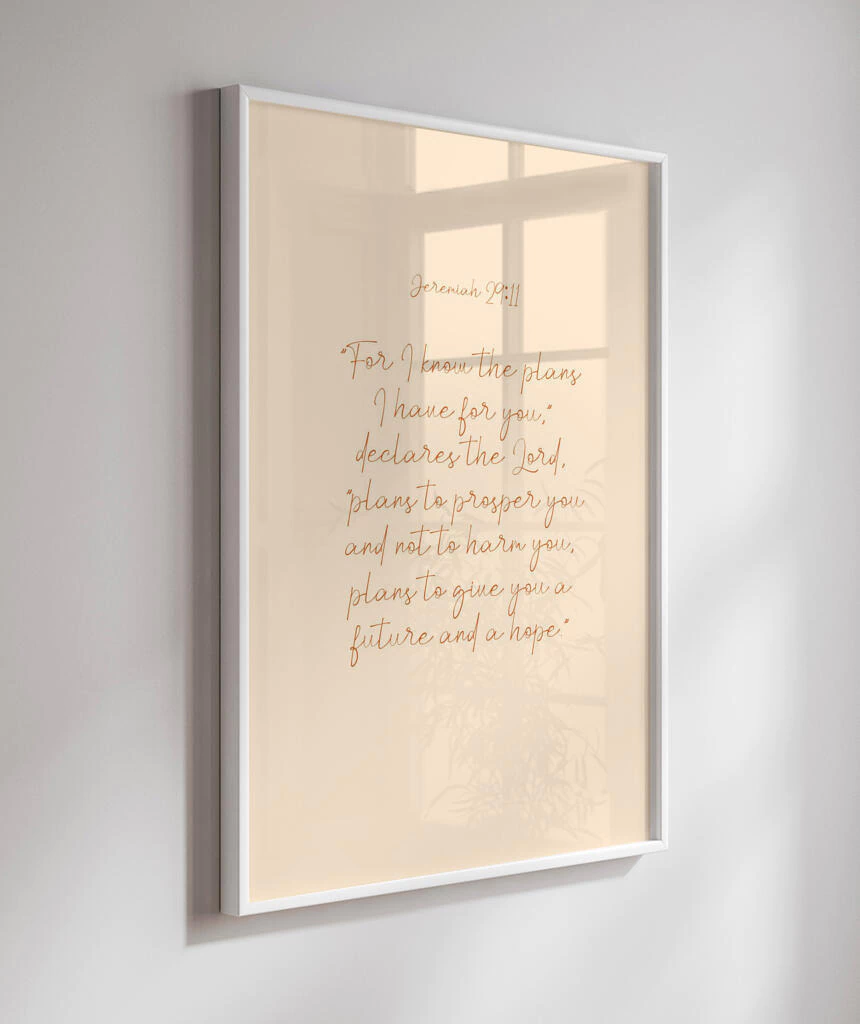 Jeremiah 29:11
"For I know the plans
I have for you,"
declares the Lord,
"plans to prosper you
and not to harm you,
plans to give you a
future and a hope."